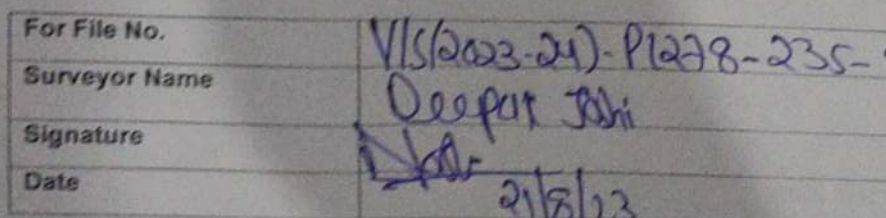 For File No. VIS(2023-24)-PL278-235-
Surveyor Name Deepak Joshi
Signature
Date 21/8/23